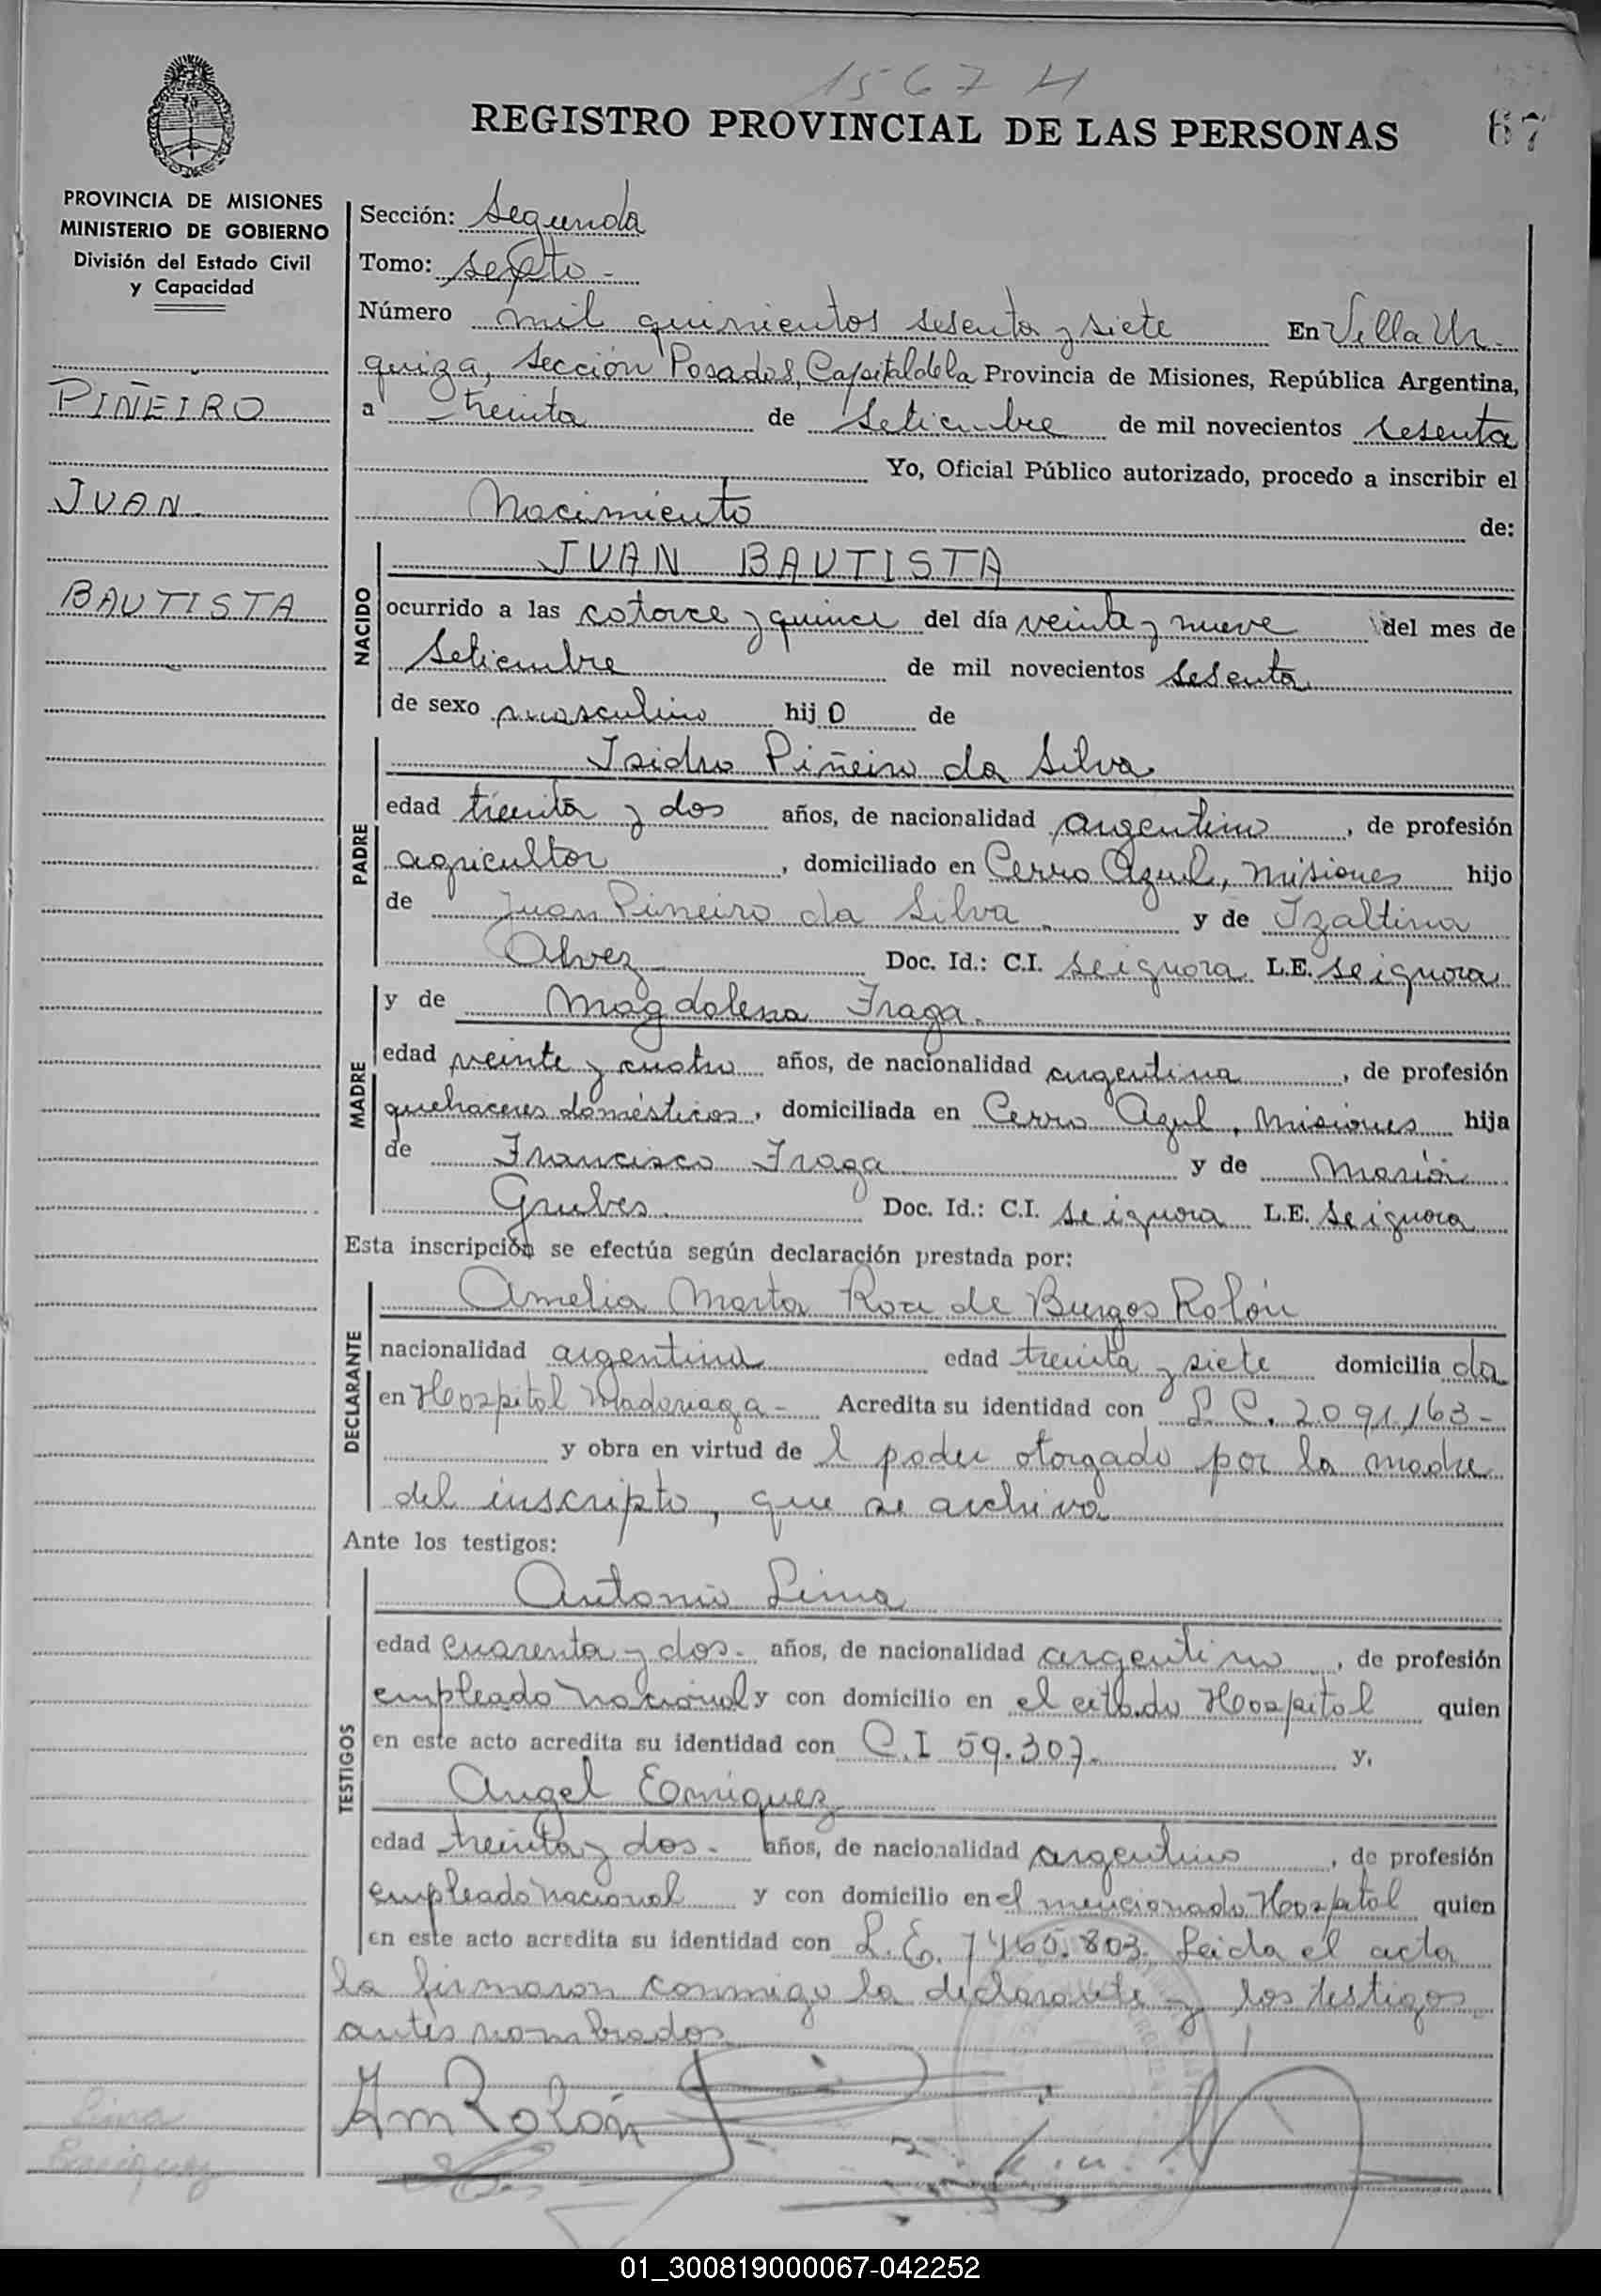 1567 H
REGISTRO PROVINCIAL DE LAS PERSONAS 67
PROVINCIA DE MISIONES
MINISTERIO DE GOBIERNO
División del Estado Civil
y Capacidad
PIÑEIRO
JUAN
BAUTISTA
Sección: Segunda
Tomo: sexto -
Número mil quinientos sesenta y siete En Villa Ur-
quiza, sección Posadas, Capital de la Provincia de Misiones, República Argentina,
a treinta de setiembre de mil novecientos sesenta
Yo, Oficial Público autorizado, procedo a inscribir el
Nacimiento de:
NACIDO
JUAN BAUTISTA
ocurrido a las catorce y quince del día veinte y nueve del mes de
setiembre de mil novecientos sesenta
de sexo masculino hijo de
PADRE
Isidro Piñeiro da Silva
edad treinta y dos años, de nacionalidad argentino, de profesión
agricultor, domiciliado en Cerro Azul, Misiones hijo
de Juan Piñeiro da Silva y de Izaltina
Alvez Doc. Id.: C.I. se ignora L.E. se ignora
MADRE
y de Magdalena Fraga.
edad veinte y cuatro años, de nacionalidad argentina, de profesión
quehaceres domésticos, domiciliada en Cerro Azul, Misiones hija
de Francisco Fraga y de María
Doc. Id.: C.I. se ignora L.E. se ignora
Esta inscripción se efectúa según declaración prestada por:
DECLARANTE
Amelia Marta Roa de Burgos Rolón
nacionalidad argentina edad treinta y siete domiciliada
en Hospital Madariaga - Acredita su identidad con L.C. 2091163-
y obra en virtud de l poder otorgado por la madre
del inscripto, que se archiva
Ante los testigos:
TESTIGOS
Antonio Lima
edad cuarenta y dos - años, de nacionalidad argentino, de profesión
empleado nacional y con domicilio en el citado Hospital quien
en este acto acredita su identidad con C.I 59.307- y,
Angel Enriquez
edad treinta y dos - años, de nacionalidad argentino, de profesión
empleado nacional y con domicilio en el mencionado Hospital quien
en este acto acredita su identidad con L.E. 7465.803. Leida el acta
la firmaron conmigo la declarante y los testigos
antes nombrados
AmRolón
Lima
Enriquez
01_300819000067-042252